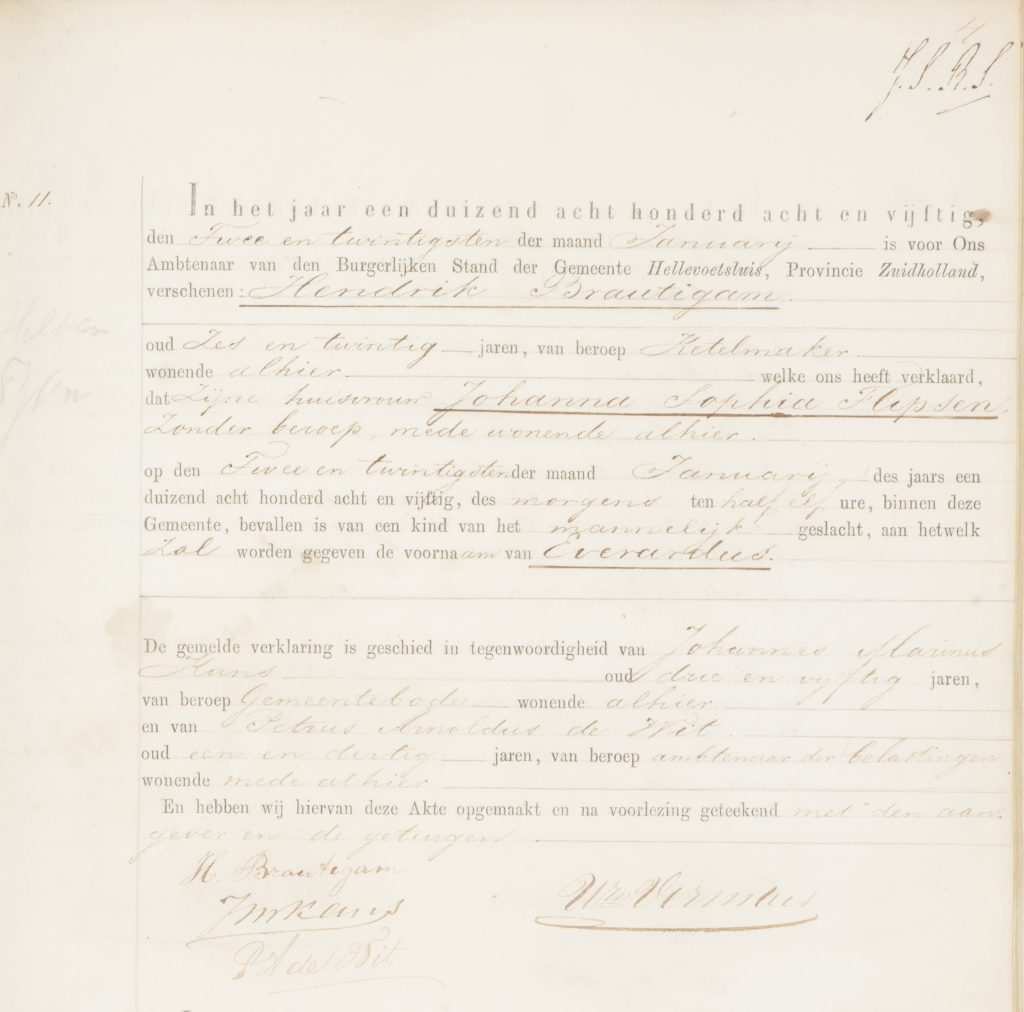 J. S. R. S.
Nº. 11.
In het jaar een duizend acht honderd acht en vijftig,
den Twee en twintigsten der maand Januarij is voor Ons
Ambtenaar van den Burgerlijken Stand der Gemeente Hellevoetsluis, Provincie Zuidholland,
verschenen: Hendrik Brautigam.
oud Zes en twintig jaren, van beroep Ketelmaker
wonende alhier welke ons heeft verklaard,
dat Zijne huisvrouw Johanna Sophia Flipsen,
Zonder beroep, mede wonende alhier.
op den Twee en twintigsten der maand Januarij des jaars een
duizend acht honderd acht en vijftig, des morgens ten half elf ure, binnen deze
Gemeente, bevallen is van een kind van het mannelijk geslacht, aan hetwelk
Zal worden gegeven de voornaam van Everardus.
De gemelde verklaring is geschied in tegenwoordigheid van Johannes Marinus
Kans oud drie en vyftig jaren,
van beroep Gemeentebode wonende alhier
en van Petrus Arnoldus de Wit
oud een en dertig jaren, van beroep ambtenaar der belastingen
wonende mede alhier
En hebben wij hiervan deze Akte opgemaakt en na voorlezing geteekend met den aan-
gever en de getuigen
H. Brautigam
JM Kans
PA de Wit